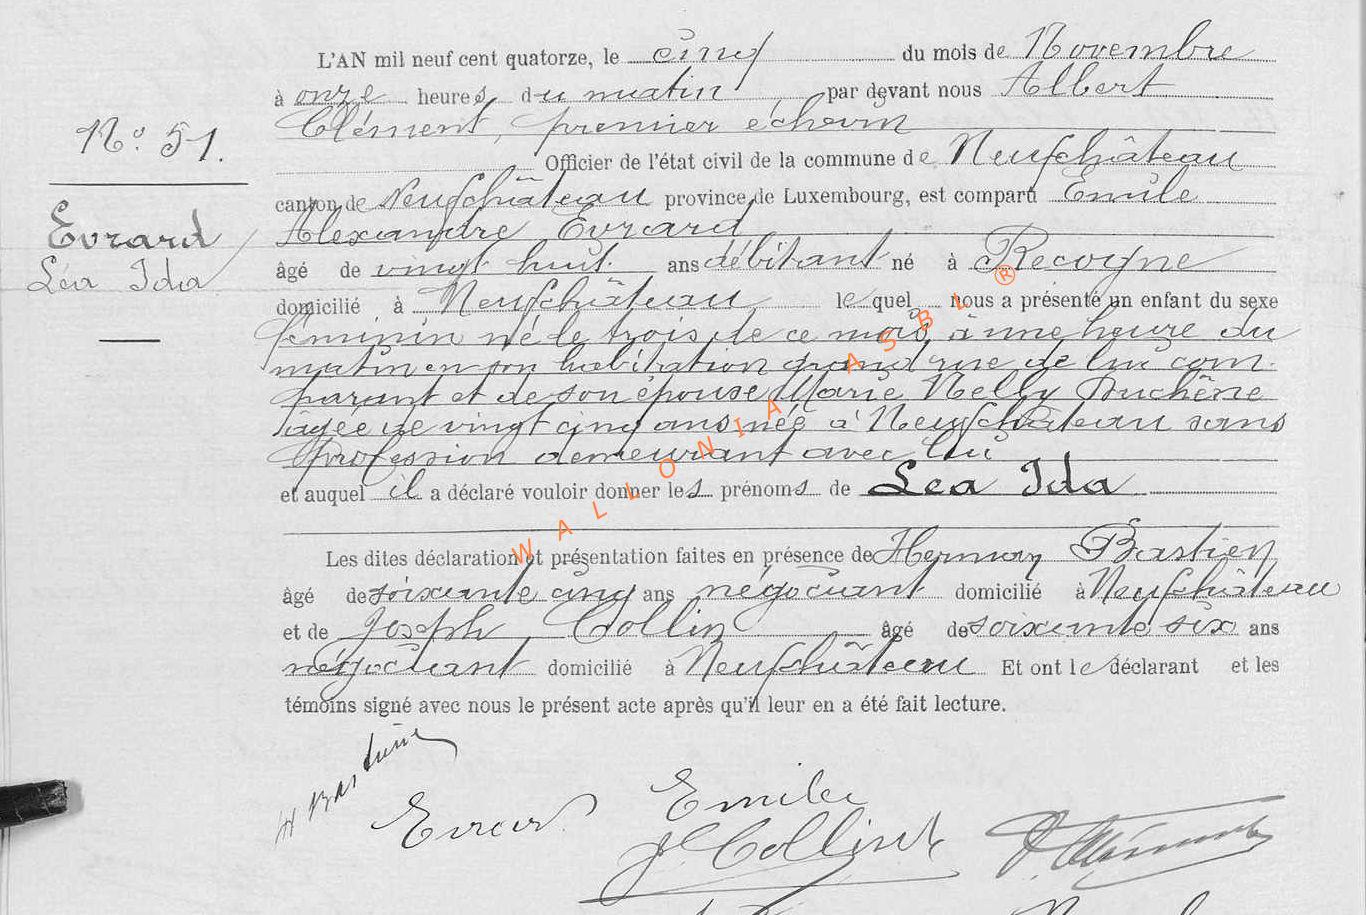 L'AN mil neuf cent quatorze, le cinq du mois de Novembre
à onze heures du matin, par devant nous Albert
Clément, premier échevin
N° 51.
Officier de l'état civil de la commune de Neufchâteau
canton de Neufchâteau province de Luxembourg, est comparu Emile
Alexandre Evrard
Evrard
Léa Ida
âgé de vingt huit ans débitant né à Recogne
domicilié à Neufchâteau lequel nous a présenté un enfant du sexe
féminin né le trois de ce mois, à une heure du
matin en son habitation grand'rue de lui com-
parant et de son épouse Marie Nelly Duchêne
âgée de vingt cinq ans née à Neufchâteau sans
profession demeurant avec lui
et auquel il a déclaré vouloir donner les prénoms de Léa Ida
Les dites déclaration et présentation faites en présence de Herman Bastien
âgé de soixante cinq ans négociant domicilié à Neufchâteau
et de Joseph Collin âgé de soixante six ans
négociant domicilié à Neufchâteau Et ont le déclarant et les
témoins signé avec nous le présent acte après qu'il leur en a été fait lecture.
H Bastien
Evrard Emile
J Collin
A. Clément
WALLONIA ASBL ®